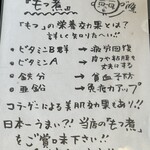 『もつ煮』
『もつ』の栄養効果とは？
詳しくご紹介致します！
・ビタミンB群 → 疲労回復
・ビタミンA → 皮フや粘膜を
丈夫にする
・鉄分 → 貧血予防
・亜鉛 → 免疫力アップ
コラーゲンによる美肌効果もあり!!
日本一うまい??当店のもつ煮
をご賞味下さい!!